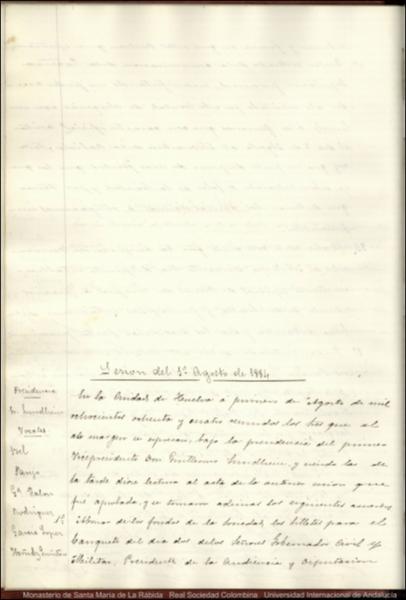 Sesion del 1º Agosto de 1884
Presidencia
Sr. Sundheim
Vocales
Garcia Lopez
En la Ciudad de Huelva á primero de Agosto de mil
ochocientos ochenta y cuatro reunidos los Sres que al
márgen se espresan, bajo la presidencia del primer
Vicepresidente Don Guillermo Sundheim, y siendo las de
la tarde dióse lectura al acta de la anterior sesion que
fué aprobada, y se tomaron ademas los siguientes acuerdos
Abonar de los fondos de la Sociedad, los billetes para el
Banquete del dia dos de los Señores Gobernador Civil y
Militar, Presidente de la Audiencia y Diputacion
Monasterio de Santa María de La Rábida Real Sociedad Colombina Universidad Internacional de Andalucía